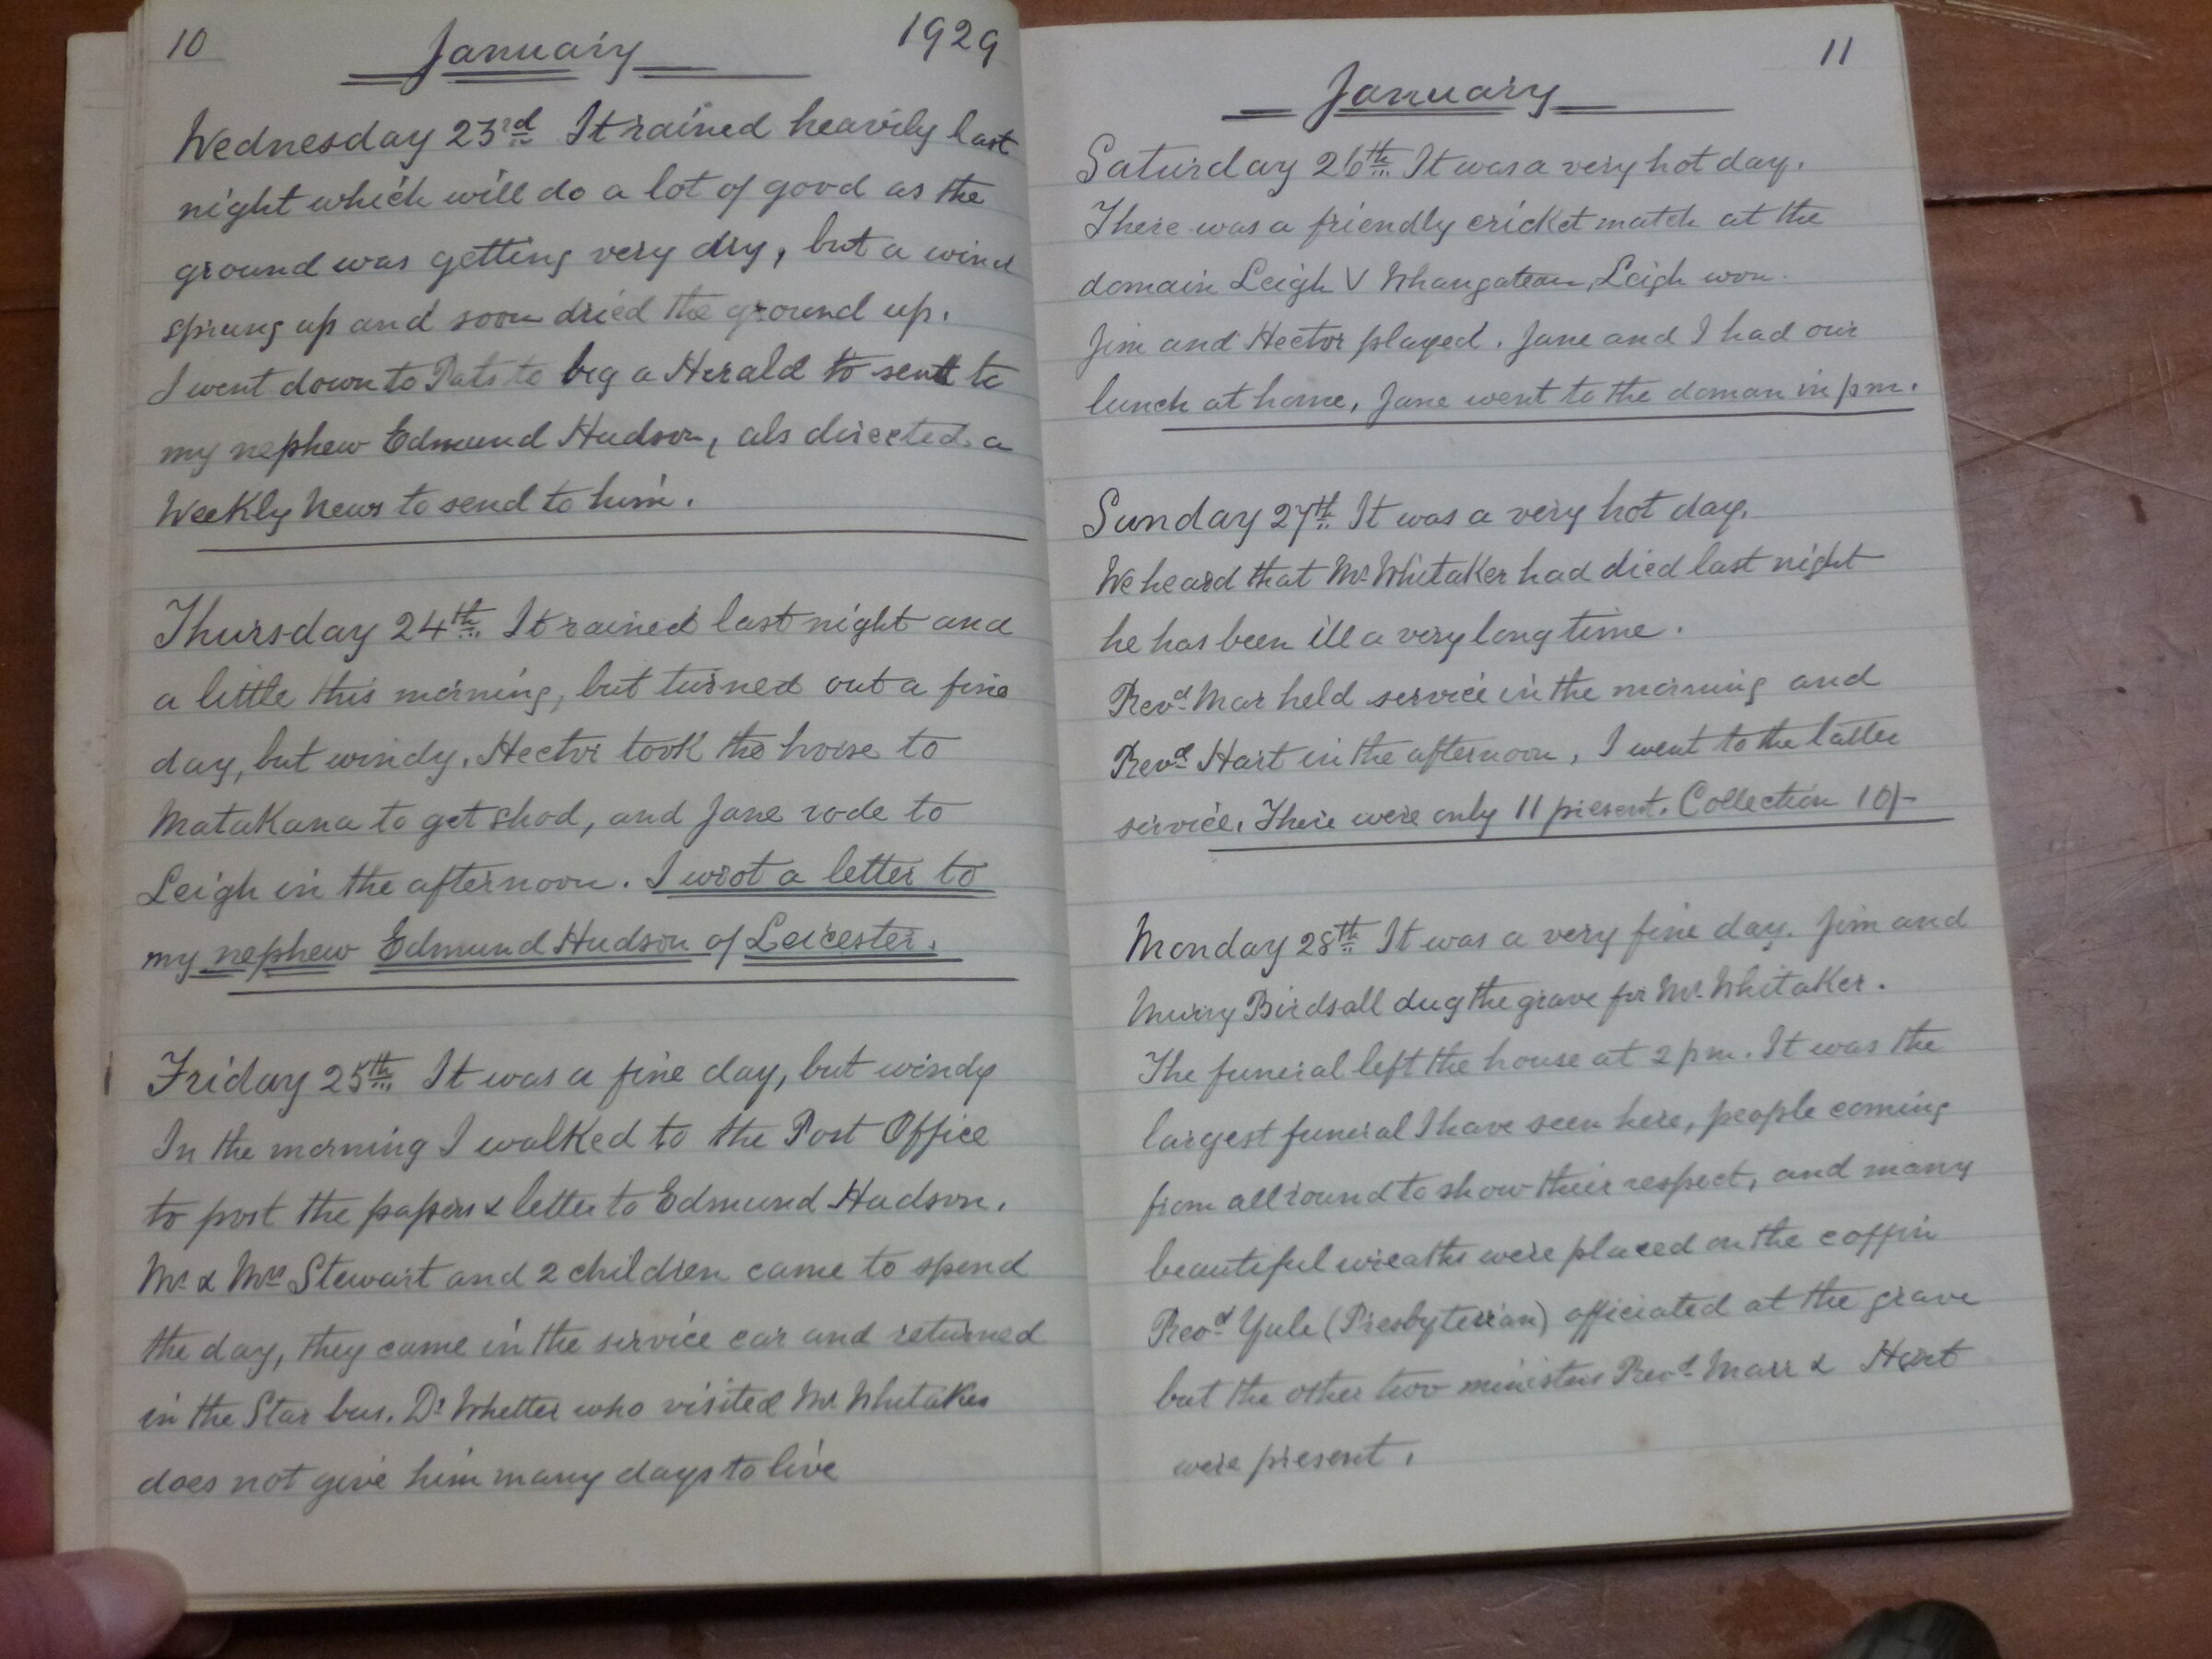 10 January 1929
Wednesday 23rd It rained heavily last
night which will do a lot of good as the
ground was getting very dry, but a wind
sprung up and soon dried the ground up.
I went down to Pats to beg a Herald to send to
my nephew Edmund Hudson, als directed a
Weekly News to send to him.
Thursday 24th It rained last night and
a little this morning, but turned out a fine
day, but windy. Hector took the horse to
Matakana to get shod, and Jane rode to
Leigh in the afternoon. I wrot a letter to
my nephew Edmund Hudson of Leicester.
Friday 25th It was a fine day, but windy
In the morning I walked to the Post Office
to post the papers & letter to Edmund Hudson.
Mr & Mrs Stewart and 2 children came to spend
the day, they came in the service car and returned
in the Star bus. Dr Whetter who visited Mr Whitaker
does not give him many days to live
11
January
Saturday 26th It was a very hot day.
There was a friendly cricket match at the
domain Leigh V Whangateau, Leigh won.
Jim and Hector played. Jane and I had our
lunch at home, Jane went to the doman in pm.
Sunday 27th It was a very hot day.
We heard that Mr Whitaker had died last night
he has been ill a very long time.
Revd Mar held service in the morning and
Revd Hart in the afternoon, I went to the latter
service. There were only 11 present. Collection 10/-
Monday 28th It was a very fine day. Jim and
Murry Birdsall dug the grave for Mr Whitaker.
The funeral left the house at 2 pm. It was the
largest funeral I have seen here, people coming
from all round to show their respect, and many
beautiful wreaths were placed on the coffin
Revd Yule (Presbyterian) officiated at the grave
but the other two ministers Revd Marr & Hart
were present.